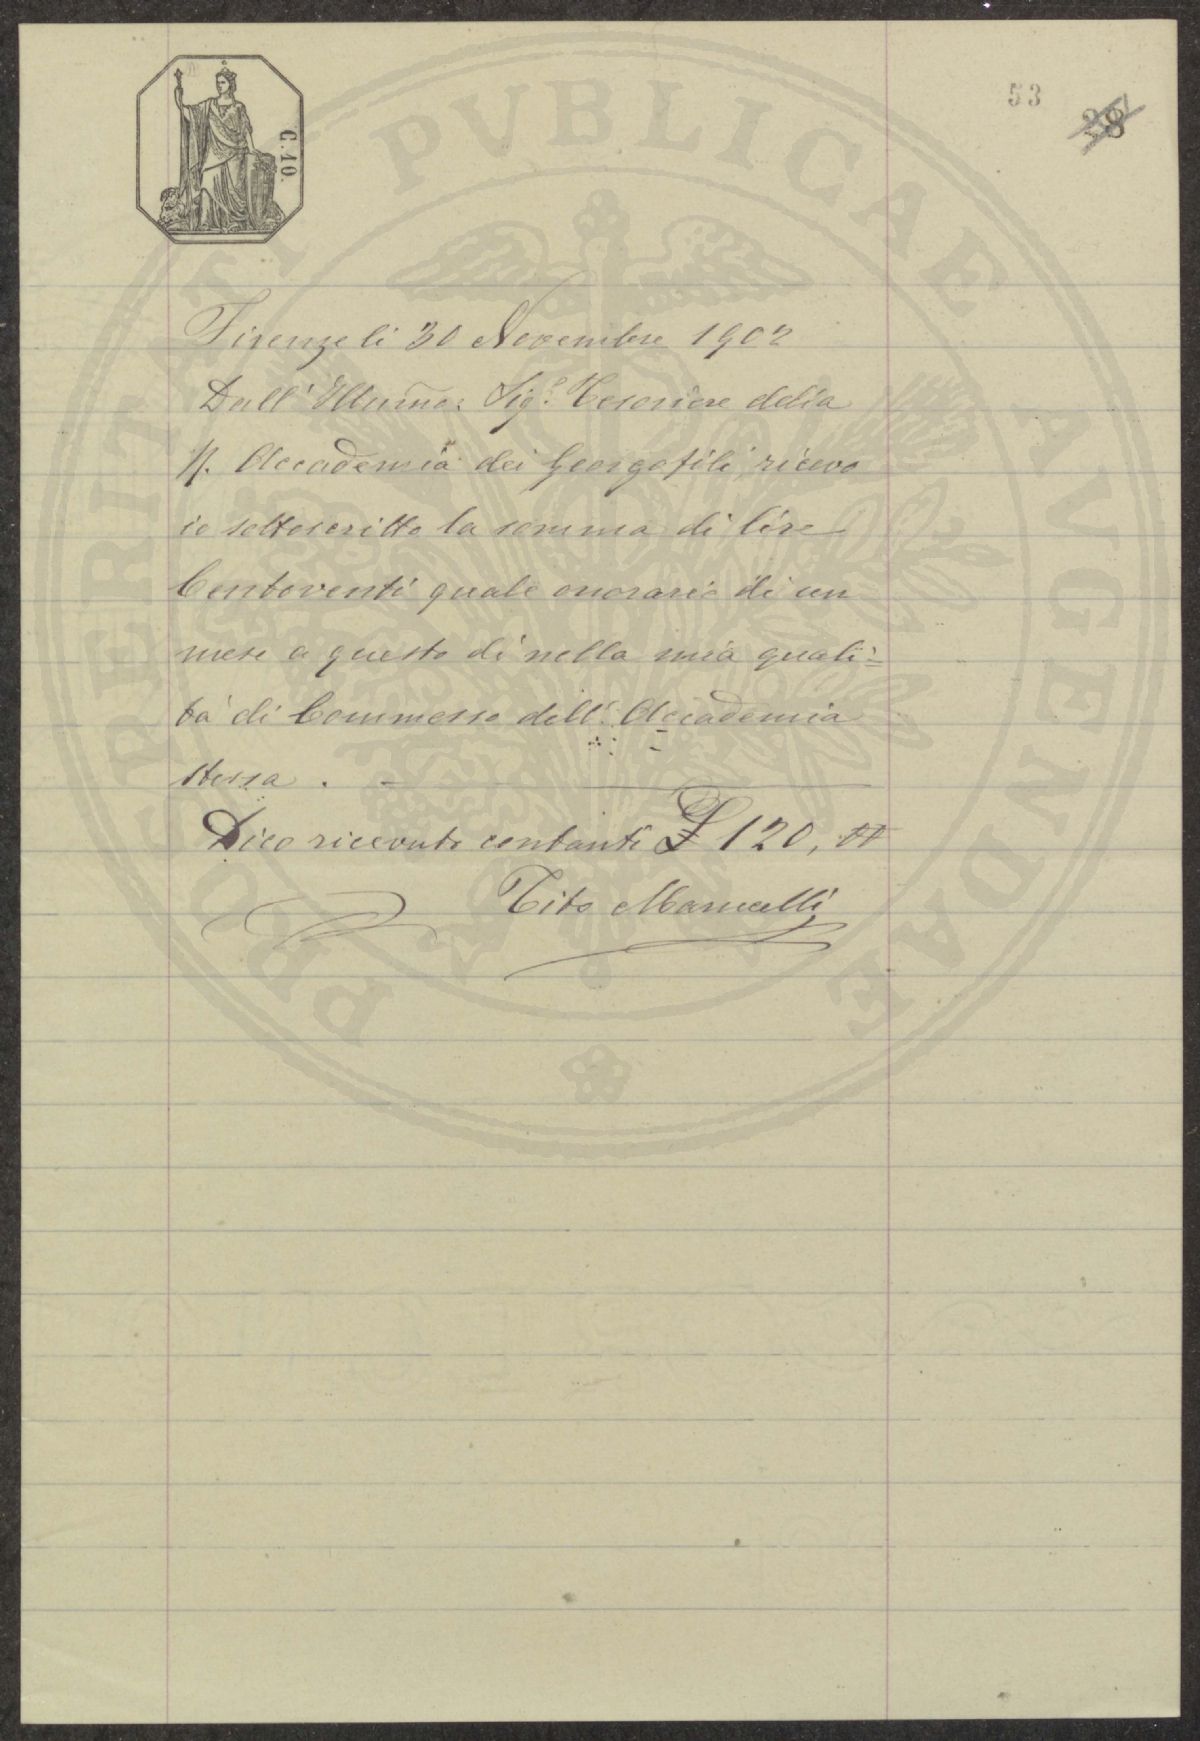 53
28
C. 10.
Firenze li 30 Novembre 1902
Dall' Illumo: Sigr. Tesoriere della
R. Accademia dei Georgofili ricevo
io sottoscritto la somma di lire
Centoventi quale onorario di un
mese a questo dì nella mia quali=
tà di Commesso dell' Accademia
stessa . –
Dico ricevuto contanti £ 120,
Tito Marucelli
PROSPERITATI PVBLICAE AVGENDAE